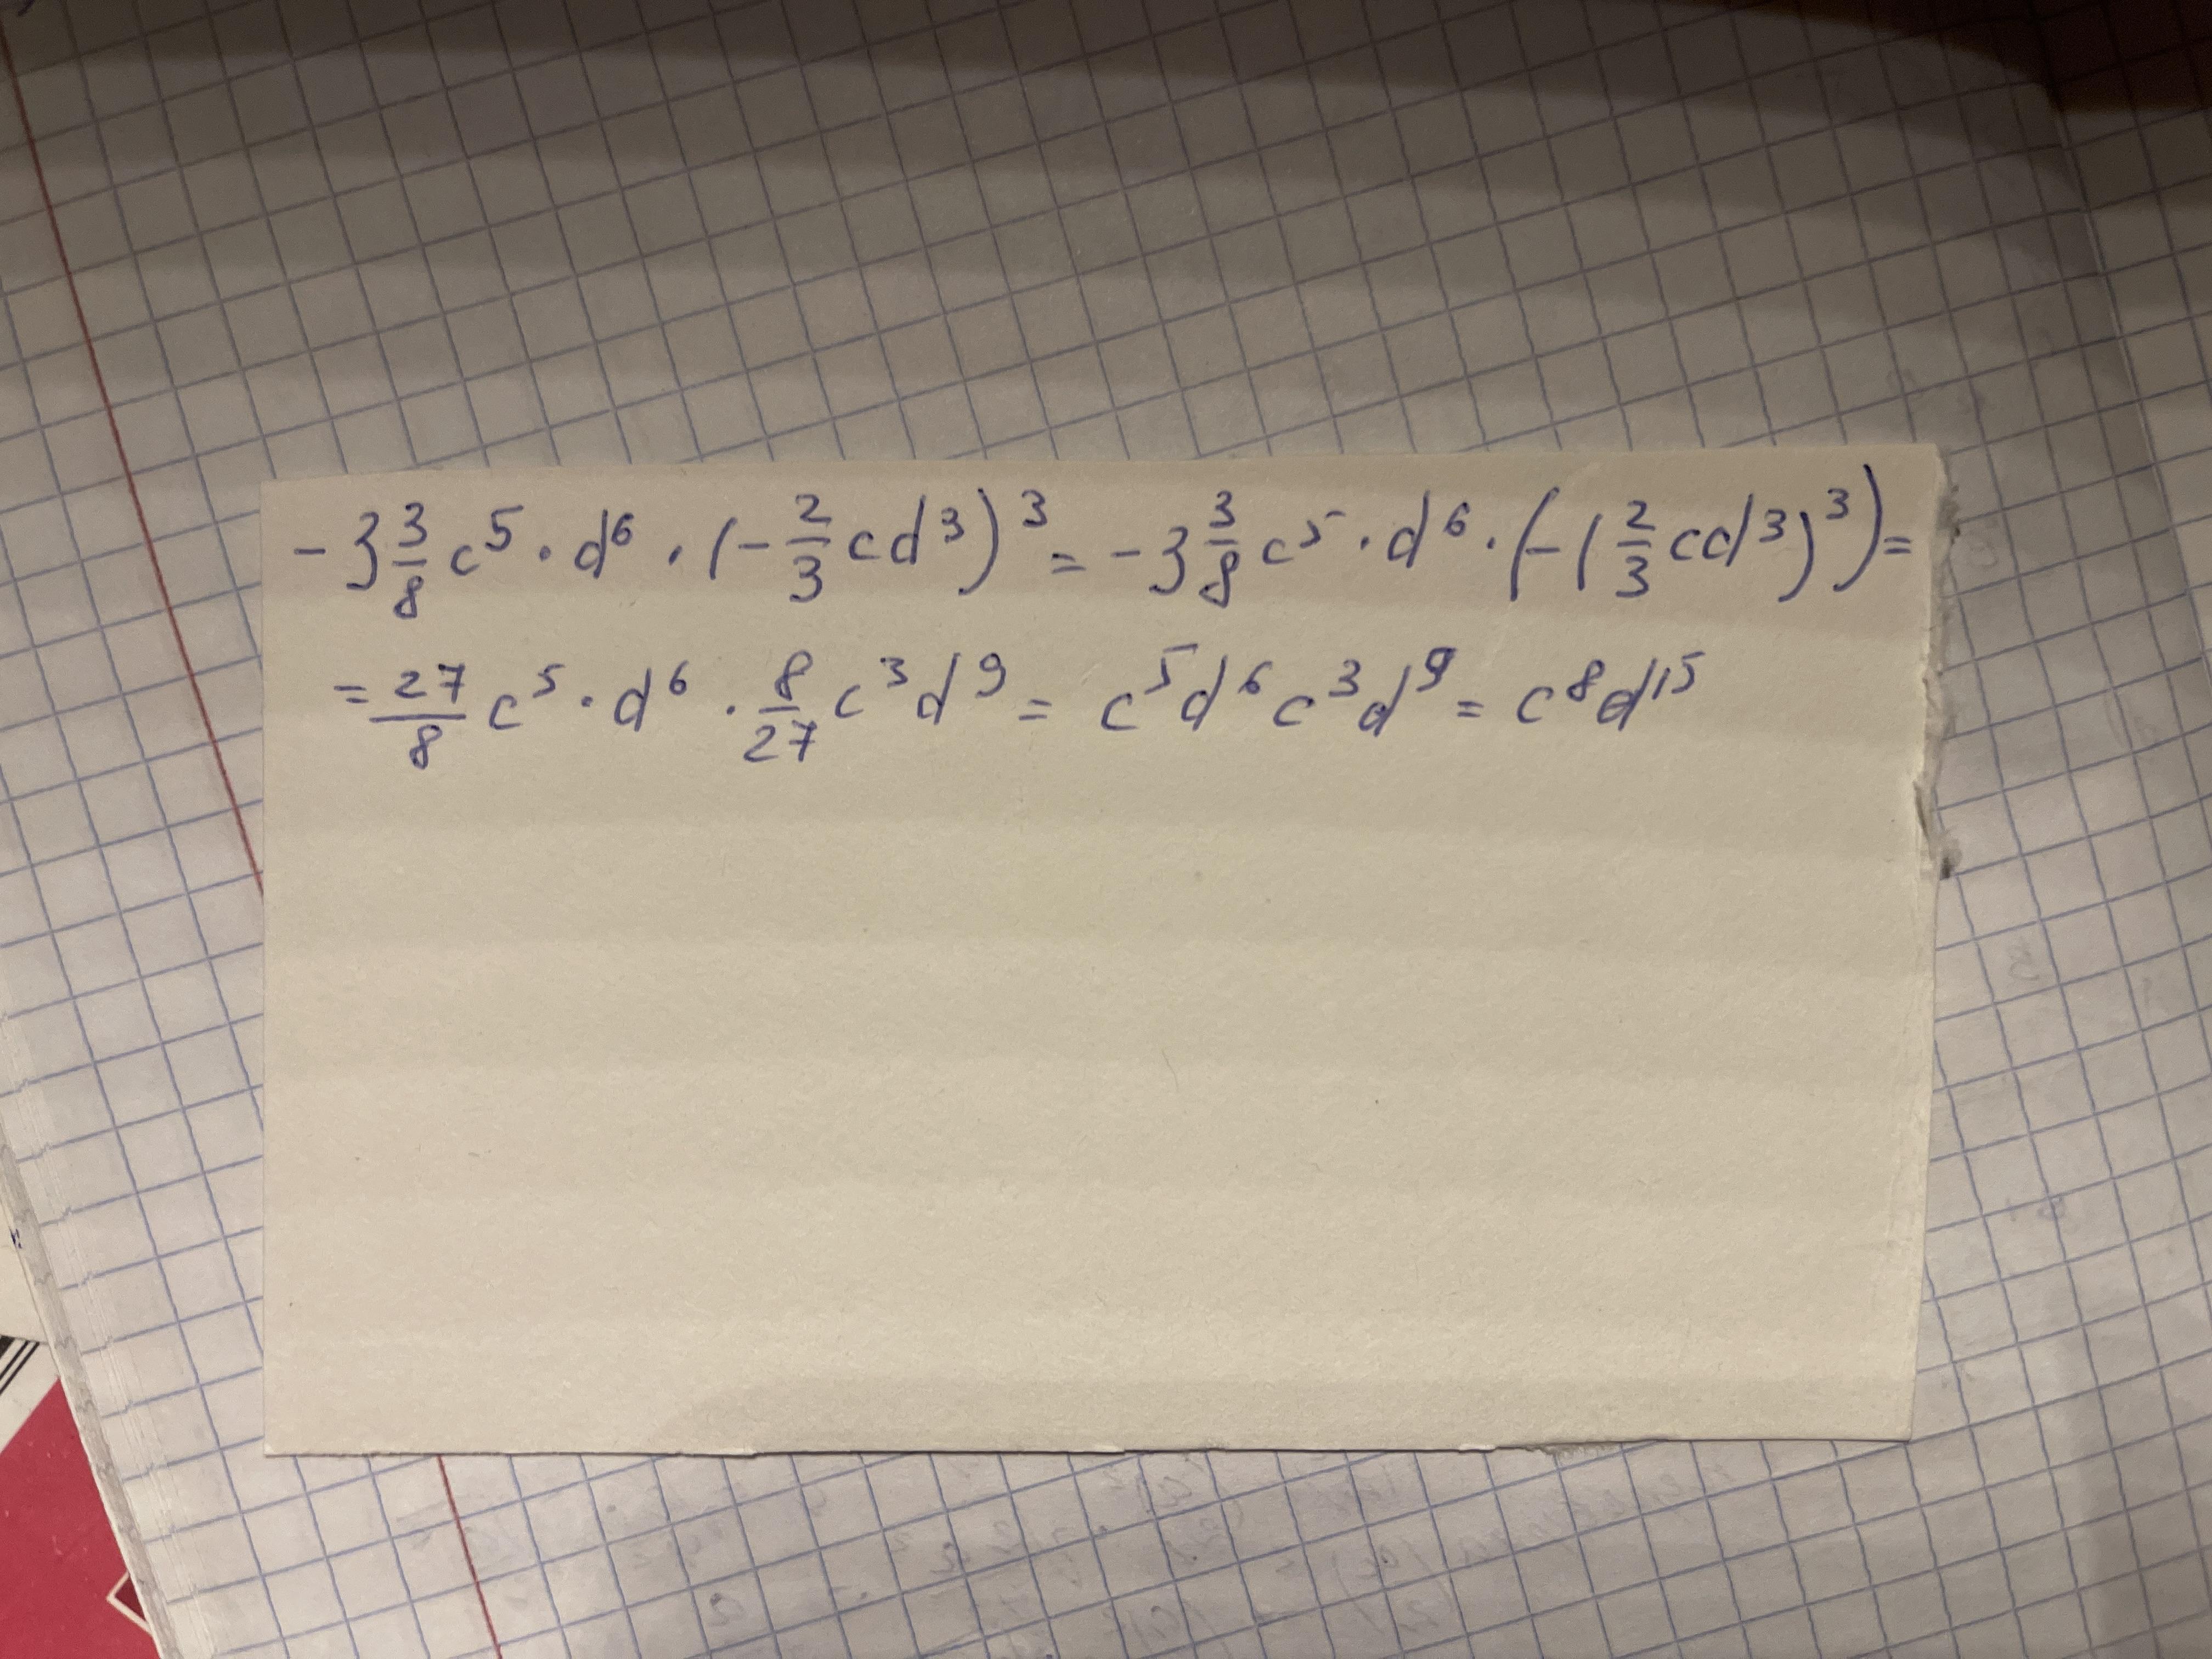 -3 3/8 c^5 · d^6 · (-2/3 cd^3)^3 = -3 3/8 c^5 · d^6 · (-(2/3 cd^3)^3) =
= 27/8 c^5 · d^6 · 8/27 c^3 d^9 = c^5 d^6 c^3 d^9 = c^8 d^15